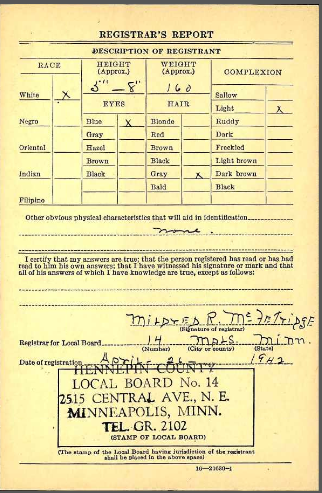 REGISTRAR'S REPORT
DESCRIPTION OF REGISTRANT
RACE HEIGHT (Approx.) WEIGHT (Approx.) COMPLEXION
5" - 8" 160
White X Sallow
EYES HAIR Light X
Negro Blue X Blonde Ruddy
Gray Red Dark
Oriental Hazel Brown Freckled
Brown Black Light brown
Indian Black Gray X Dark brown
Bald Black
Filipino
Other obvious physical characteristics that will aid in identification
none.
I certify that my answers are true; that the person registered has read or has had
read to him his own answers; that I have witnessed his signature or mark and that
all of his answers of which I have knowledge are true, except as follows:
MILDRED R. McFETRIDGE
(Signature of registrar)
Registrar for Local Board 14 MPLS. Minn.
(Number) (City or county) (State)
Date of registration April 26 1942
HENNEPIN COUNTY
LOCAL BOARD No. 14
2515 CENTRAL AVE., N. E.
MINNEAPOLIS, MINN.
TEL. GR. 2102
(STAMP OF LOCAL BOARD)
(The stamp of the Local Board having jurisdiction of the registrant
shall be placed in the above space)
16—21630-1